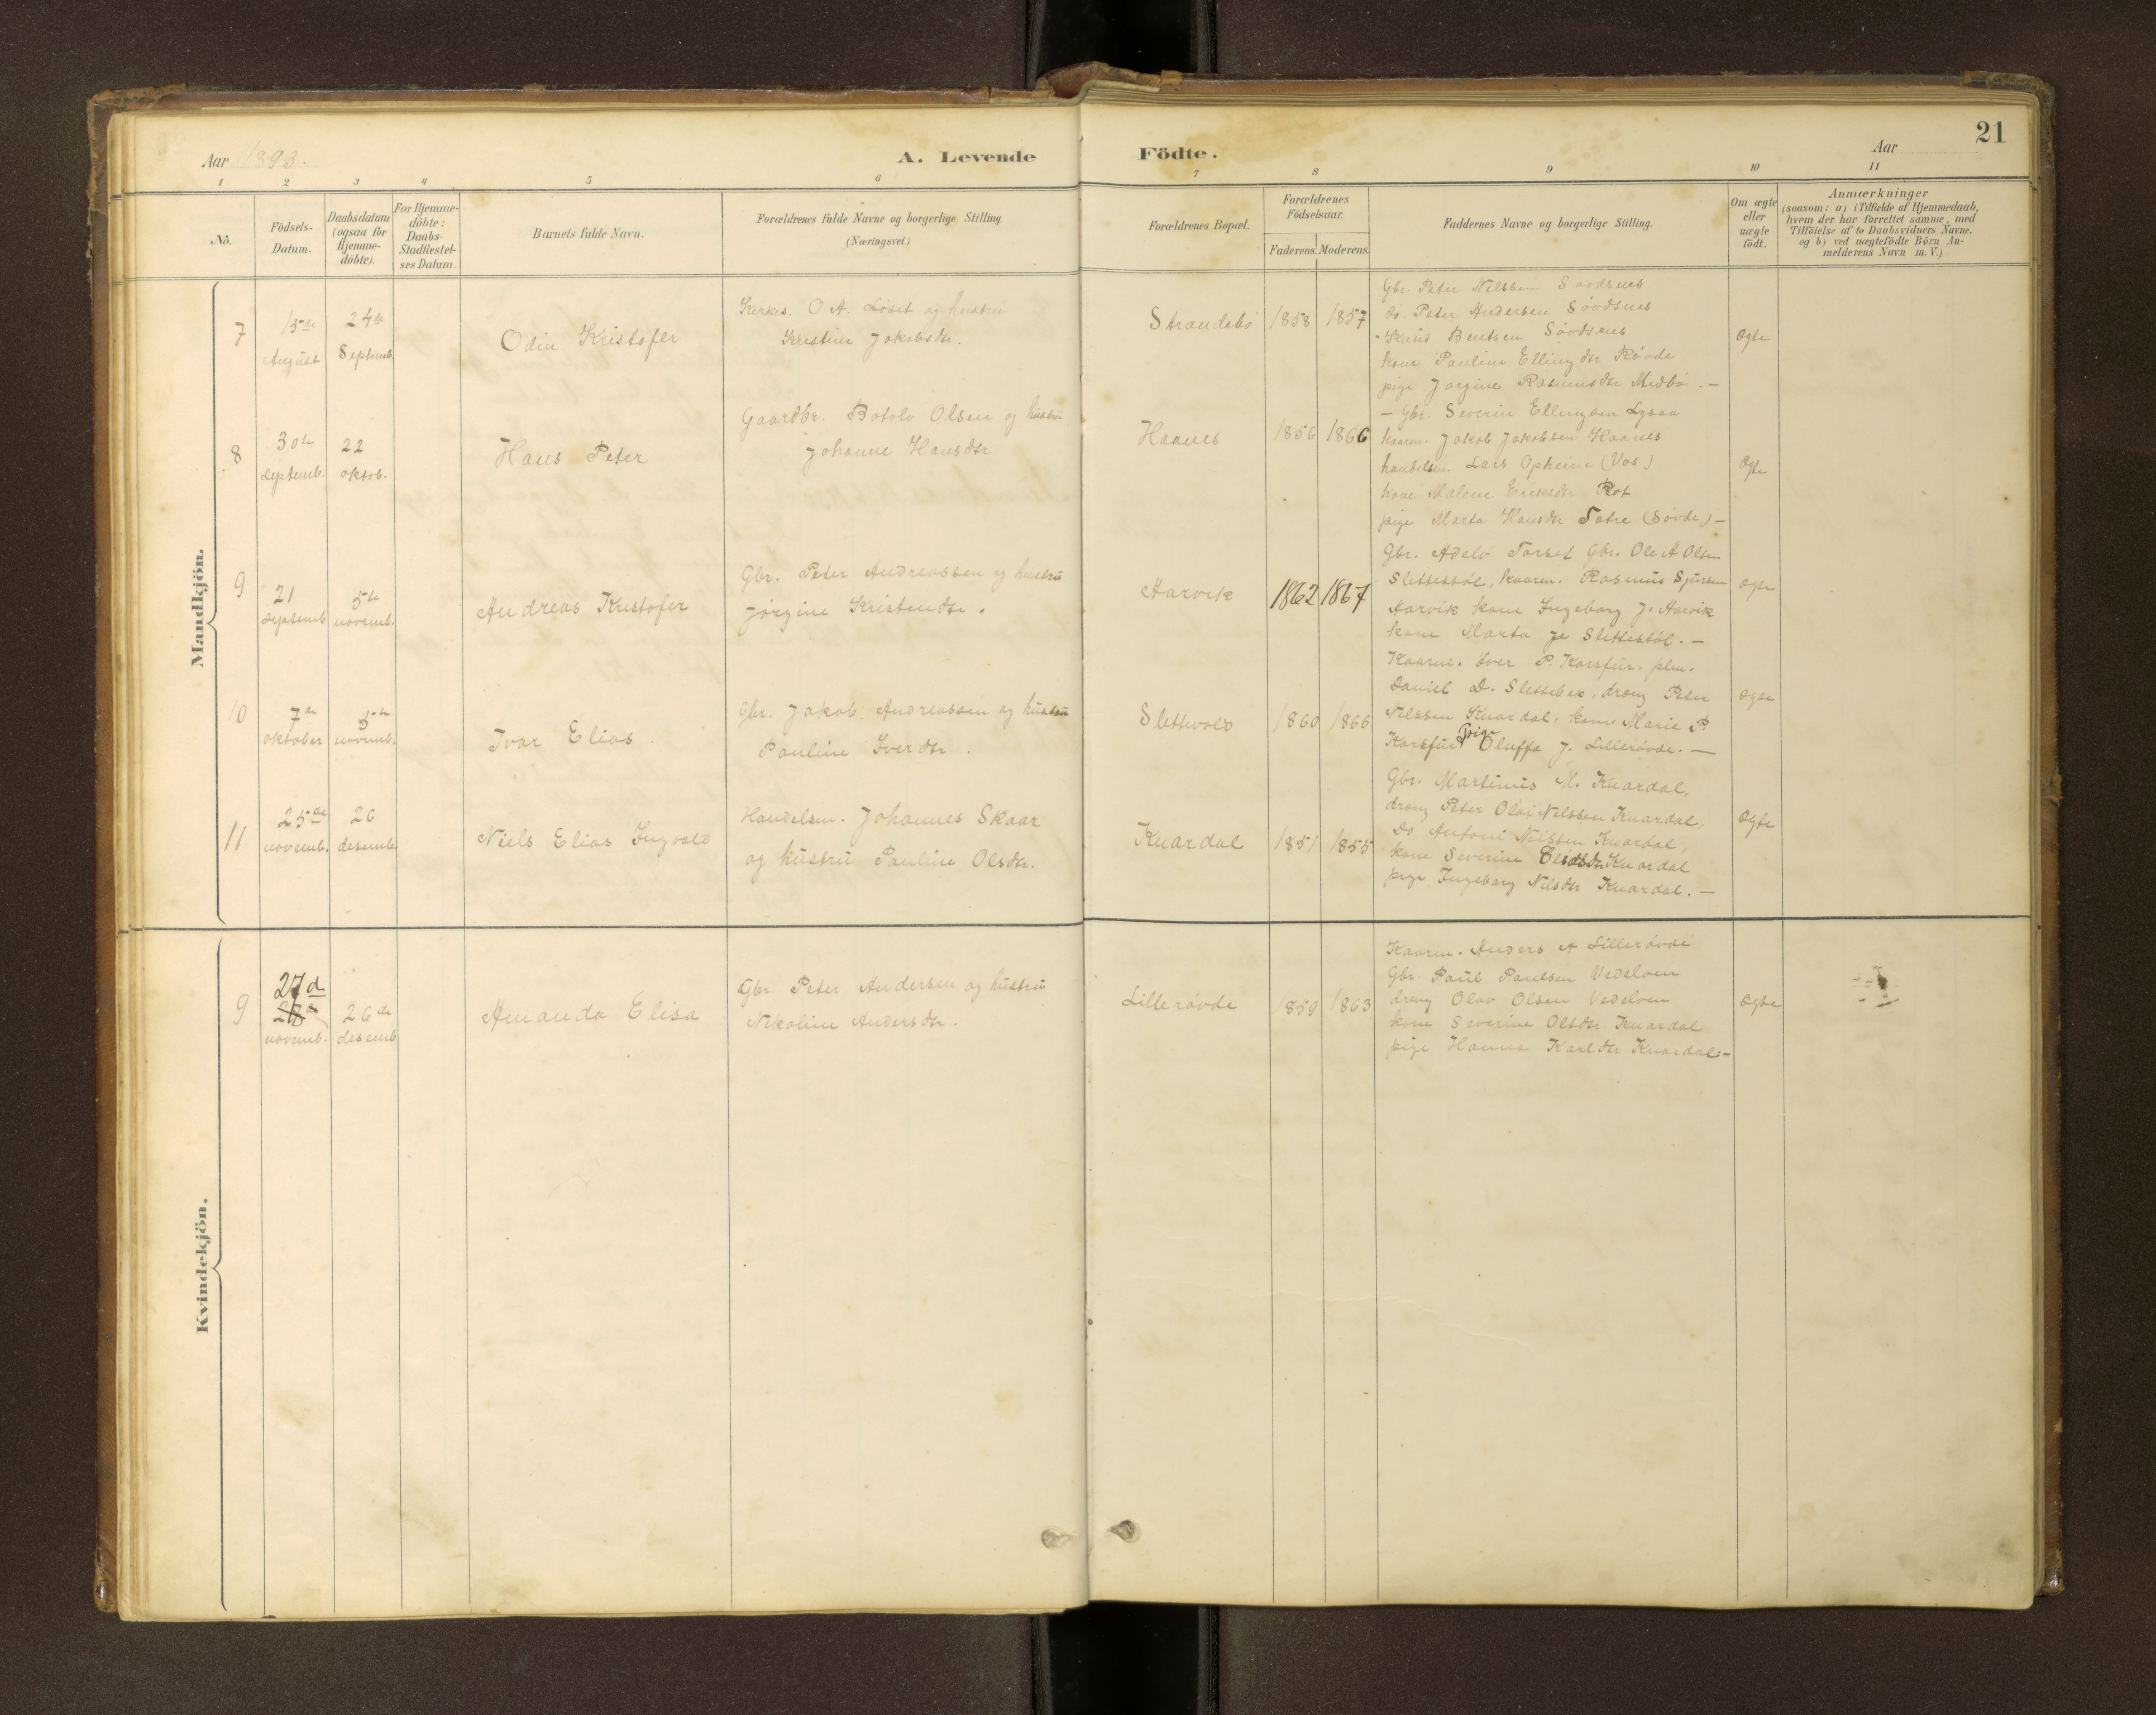 Aar 1893.
A. Levende
Födte.
Aar
21
1 2 3 4 5 6 7 8 9 10 11
Nô.
Födsels-
Datum.
Daabsdatum
(ogsaa for
Hjemme-
döbte).
For Hjemme-
döbte:
Daabs-
Stadfæstel-
ses Datum.
Barnets fulde Navn.
Forældrenes fulde Navne og borgerlige Stilling.
(Næringsvei.)
Forældrenes Bopæl.
Forældrenes
Födselsaar.
Faderens. Moderens.
Faddernes Navne og borgerlige Stilling.
Om ægte
eller
uægte
födt.
Anmærkninger
(saasom: a) i Tilfælde af Hjemmedaab,
hvem der har forrettet samme, med
Tilföielse af to Daabsvidners Navne,
og b) ved uægtefödte Börn An-
melderens Navn m. V.)
Mandkjön.
7
15de
August
24de
Septemb.
Odin Kristofer
Kirkes. O. A. Löset og hustru
Kristine Jakobsdtr.
Strandebö
1858
1857
Gbr. Peter Nilssen
Do. Peter Andersen Sövdsnes
Knud Bentsen Sövdsnes
kone Pauline Ellingdtr Rövde
pige Jorgine Rasmusdtr Medbö. –
Ægte
8
30te
septemb.
22
oktob.
Hans Peter
Gaardbr. Botolv Olsen og hustru
Johanne Hansdtr
Haanes
1856
1866
– Gbr. Severin Ellingsen
kaarm. Jakob Jakobsen Haanes
handelsm. Lars Opheim (Vos)
kone Malene Eriksdtr Rot
pige Marta Hansdtr Sætre (Sövde) –
Ægte
9
21
septemb
5te
novemb.
Andreas Kristofer
Gbr. Peter Andreassen og hustru
Jørgine Kristendtr.
Aarvik
1862
1867
Gbr. Adelv Torset Gbr. Ole A Olsen
Slettestöl, kaarm. Rasmus Sjursen
Aarvik kone Ingeborg J. Aarvik
kone Marta Slettestöl. –
Ægte
10
7de
oktober
5te
novemb.
Ivar Elias
Gbr. Jakob Andreassen og hustru
Pauline Iverdtr.
Slettevold
1860
1866
Kaarm. Iver P. Korsfur. plm.
Daniel D. Slettebak, dreng Peter
Nilssen Knardal, kone Marie P.
Korsfur Pige Oluffa J. Lillerövde. –
Ægte
11
25de
novemb.
26
desemb.
Niels Elias Ingvald
Handelsm. Johannes Skaar
og hustru Pauline Olsdtr.
Knardal
1851
1855
Gbr. Martinus M. Knardal,
dreng Peter Olai Nilssen Knardal,
Do Antoni Nilssen Knardal,
kone Severine Olsdtr Knardal
pige Ingeborg Nilsdtr Knardal. –
Ægte
Kvindekjön.
9
27d
novemb.
26de
desemb
Amanda Elisa
Gbr. Peter Andersen og hustru
Nikoline Andersdtr.
Lillerövde
1859
1863
Kaarm. Anders A Lillerövde
Gbr. Paul Paulsen Vedelven
dreng Olav Olsen Vedelven
kone Severine Olsdtr Knardal
pige Hanna Karldtr Knardal. –
Ægte